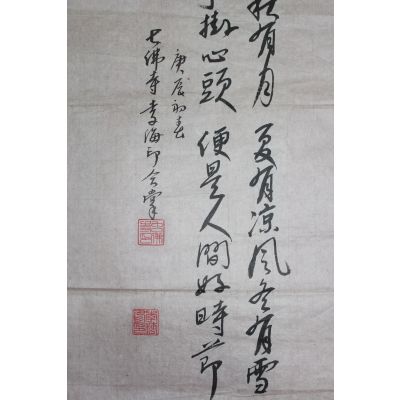 秋有月 夏有凉風冬有雪
掛心頭 便是人間好時節
庚辰初春
七佛寺 李海印合掌